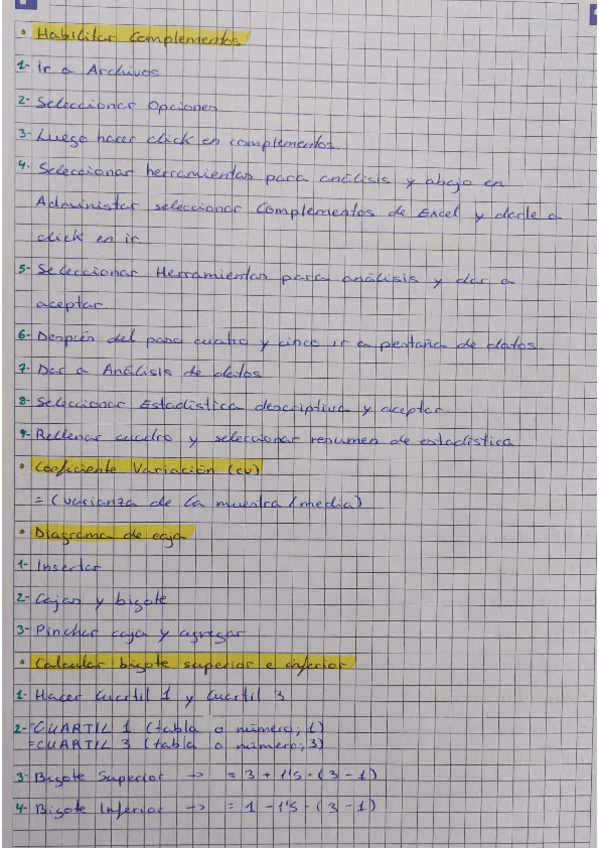 • Habilitar Complementos
1- Ir a Archivos
2- Seleccionar Opciones
3- Luego hacer click en complementos.
4- Seleccionar herramientas para análisis y abajo en
Administar seleccionar Complementos de Excel y darle a
click en ir
5- Seleccionar Herramientas para análisis y dar a
aceptar
6- Después del paso cuatro y cinco ir a pestaña de datos.
7- Dar a Análisis de datos
8- Seleccionar Estadística descriptiva y aceptar.
9- Rellenar cuadro y seleccionar resumen de estadística
• Coeficiente Variación (cv)
= (varianza de la muestra / media)
• Diagrama de caja
1- Insertar
2- Cajas y bigote
3- Pinchar caja y agregar
• Calcular bigote superior e inferior
1- Hacer Cuartil 1 y Cuartil 3
2- =CUARTIL 1 (tabla o número; 1)
=CUARTIL 3 (tabla o número; 3)
3- Bigote Superior -> = 3 + 1'5 · (3 - 1)
4- Bigote Inferior -> = 1 - 1'5 · (3 - 1)